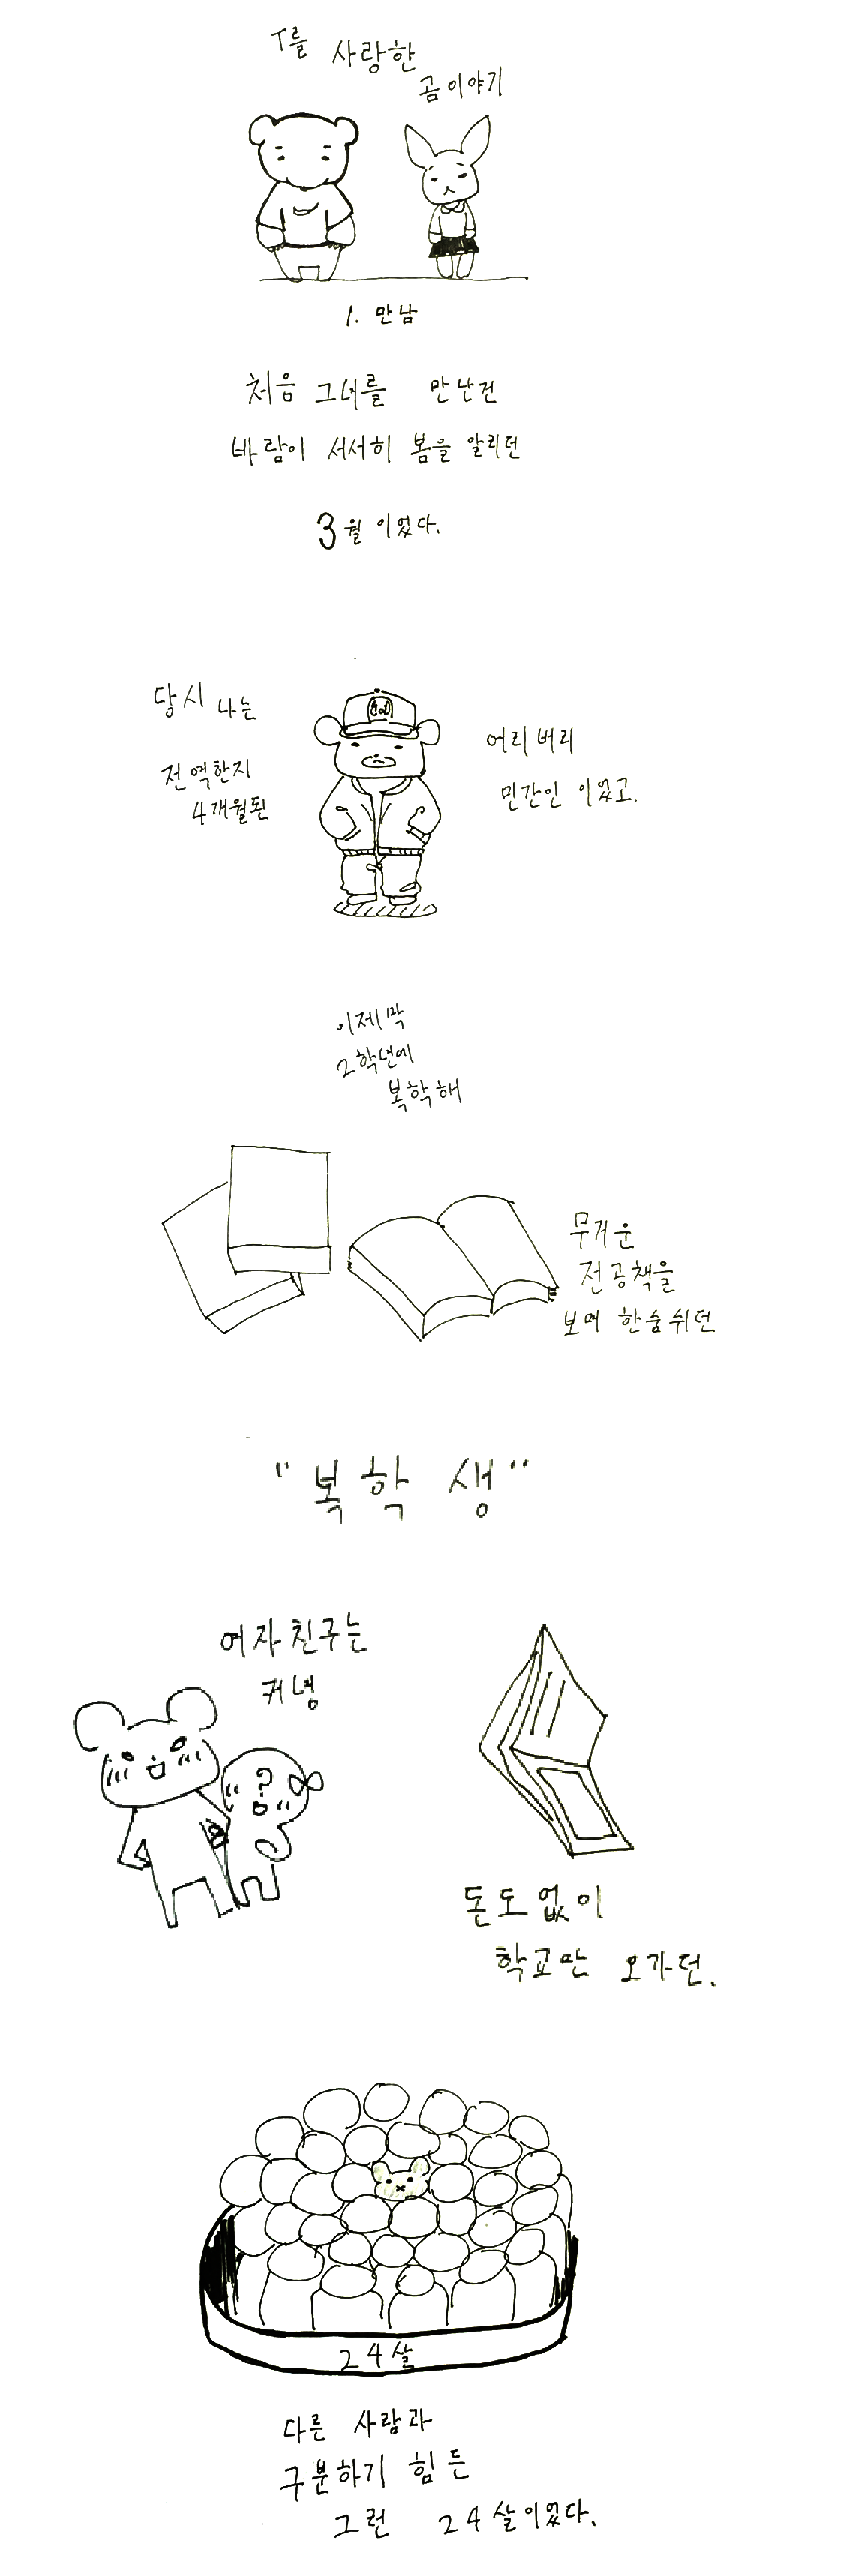 T를 사랑한
곰이야기
1. 만남
처음 그녀를 만난건
바람이 서서히 봄을 알리던
3월 이었다.
당시 나는
전역한지
4개월된
어리버리
민간인 이었고.
이제 막
2학년에
복학해
무거운
전공책을
보며 한숨쉬던
"복학생"
여자친구는
커녕
?
돈도없이
학교만 오가던.
24살
다른 사람과
구분하기 힘든
그런 24살이었다.